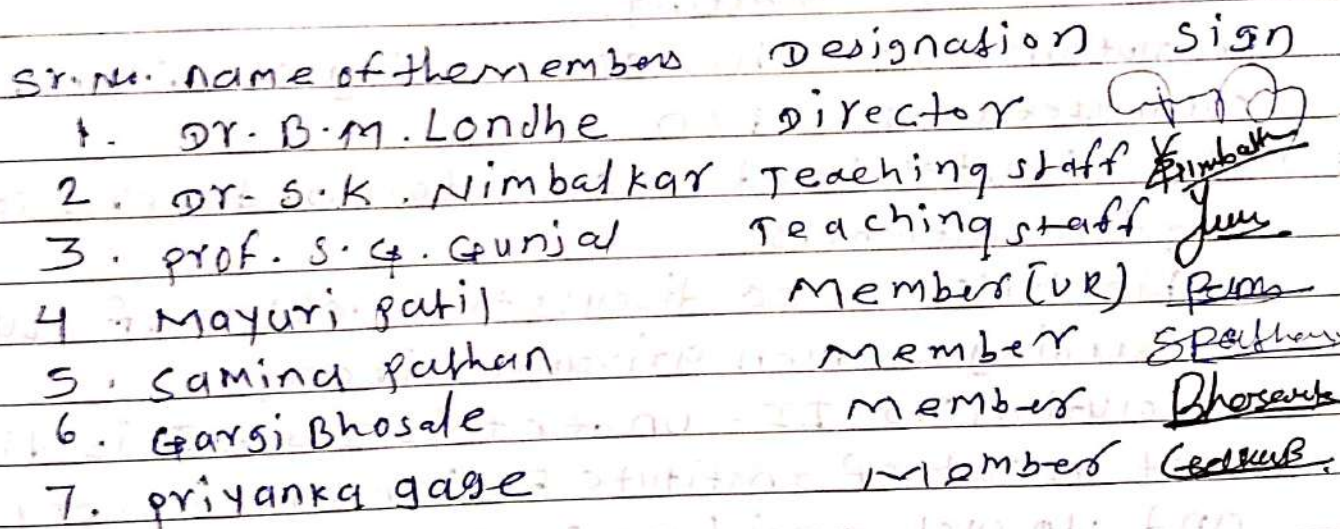 Sr. No. name of the members Designation Sign
1. Dr. B.M. Londhe Director
2. Dr. S.K. Nimbalkar Teaching staff
3. prof. S.G. Gunjal Teaching staff
4. Mayuri patil Member (UR)
5. Samina pathan member
6. Gargi Bhosale member
7. priyanka gage member